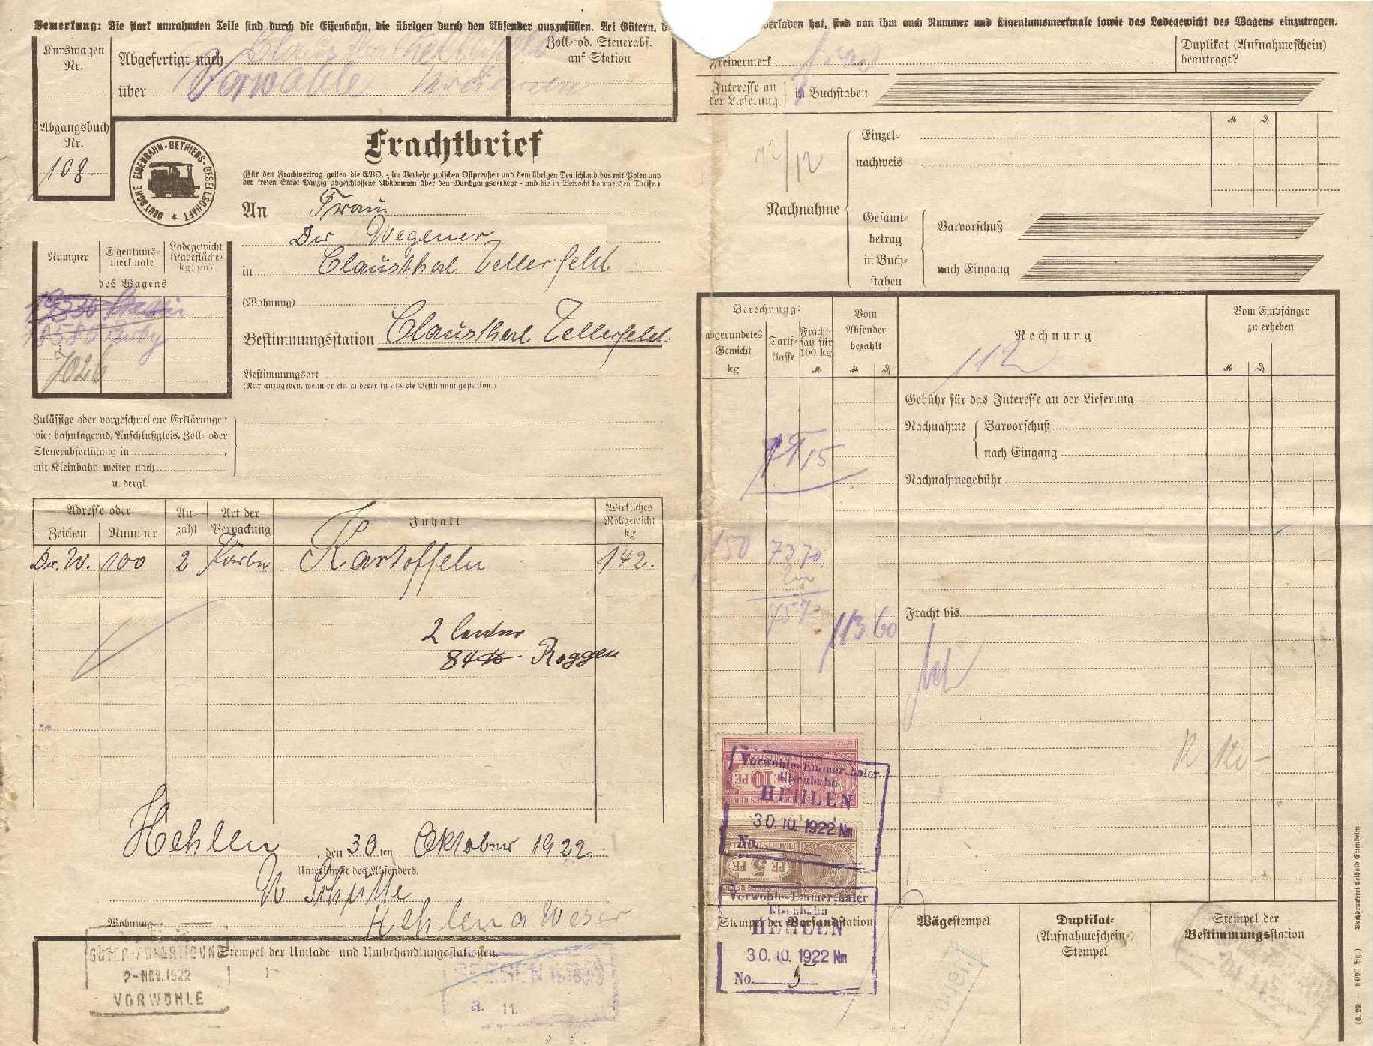 Bemerkung: Die stark umrahmten Teile sind durch die Eisenbahn, die übrigen durch den Absender auszufüllen. Bei Gütern, d
verladen hat, sind von ihm auch Nummer und Eigentumsmerkmale sowie das Ladegewicht des Wagens einzutragen.
Kurswagen
Nr.
Abgefertigt nach
über
Vorwohle
Zoll- od. Steuerabf.
auf Station
Abgangsbuch
Nr.
108
DEUTSCHE EISENBAHN-BETRIEBS-GESELLSCHAFT
Frachtbrief
An Frau
Dr Wegener
in Clausthal Zellerfeld
(Wohnung)
Bestimmungsstation Clausthal Zellerfeld
Bestimmungsort
Nummer
Eigentums-
merkmale
Ladegewicht
des Wagens
Zulässige oder vorgeschriebene Erklärungen
wie: bahnlagernd, Anschlußgleis, Zoll- oder
Steuerabfertigung in
mit Kleinbahn weiter nach
u. dergl.
Adresse oder
Zeichen Nummer
An-
zahl
Art der
Verpackung
Inhalt
Wirkliches
Rohgewicht
kg
Dr. W. 100 2 Kartoffeln 142.
2
84 Roggen
Hehlen, den 30 ten Oktober 1922
Unterschrift des Absenders.
W Schütte
Wohnung
Hehlen a Weser
Stempel der Umlade- und Umbehandlungsstationen.
2-NOV.1922
VORWOHLE
Freivermerk
Duplikat (Aufnahmeschein)
beantragt?
Interesse an
der Lieferung
in Buchstaben
12/12
Nachnahme
Einzel-
nachweis
Gesamt-
betrag
in Buch-
staben
Barvorschuß
nach Eingang
Berechnung:
abgerundetes
Gewicht
kg
Tarif-
klasse
Fracht-
satz für
100 kg
Vom
Absender
bezahlt
Rechnung
Vom Empfänger
zu erheben
112
Gebühr für das Interesse an der Lieferung
Nachnahme
Barvorschuß
nach Eingang
Nachnahmegebühr
150 7370
113 60
Fracht bis
10 PF
Vorwohle-Emmerthaler
Eisenbahn
HEHLEN
30.10.1922 Nm
No.
5 PF
Vorwohle-Emmerthaler
Eisenbahn
HEHLEN
30.10.1922 Nm
No. 5
Stempel der Versandstation
Wägestempel
Duplikat-
(Aufnahmeschein-)
Stempel
Stempel der
Bestimmungsstation